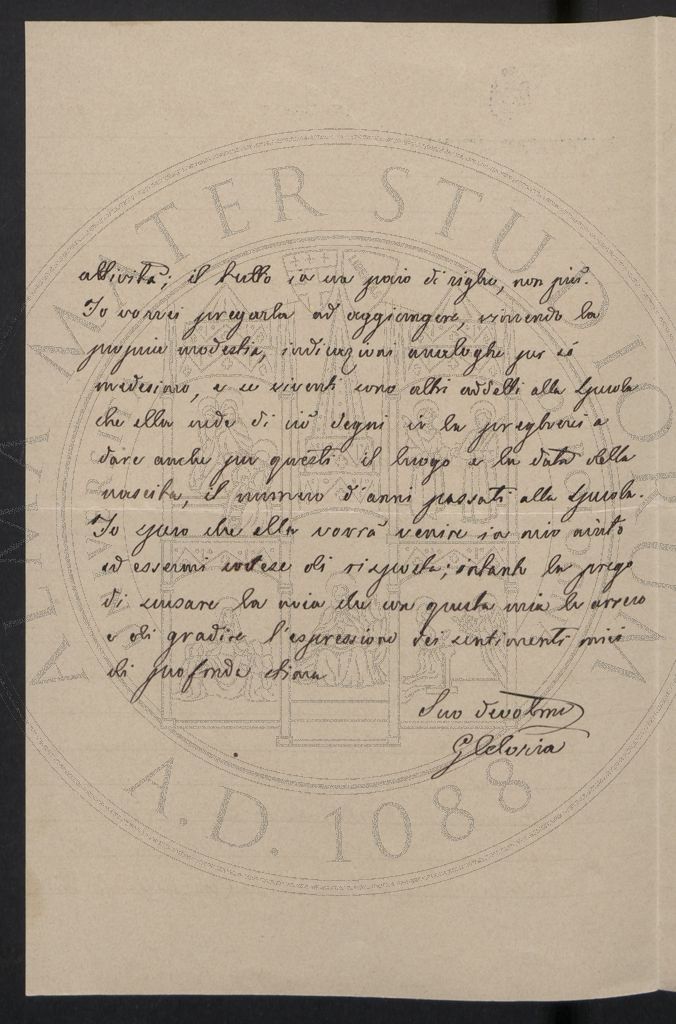 ALMA MATER STUDIORUM
A.D. 1088
attività; il tutto in un paio di righe, non più.
Io vorrei pregarla ad aggiungere, vincendo la
propria modestia, indicazioni analoghe per sé
medesimo, e se viventi sono altri addetti alla Specola
che ella vede di ciò degni io la pregherei a
dare anche per questi il luogo e la data della
nascita, il numero d'anni passati alla Specola.
Io spero che ella vorrà venire in mio aiuto
ed essermi cortese di risposta; intanto la prego
di scusare la noia che con questa mia le arreco
e di gradire l'espressione dei sentimenti miei
di profonda stima
Suo devotmo
G Celoria